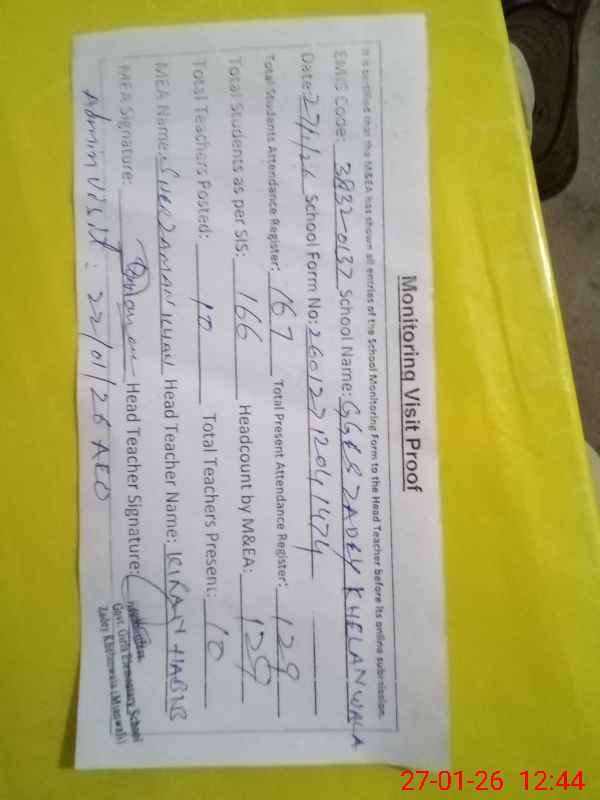 Monitoring Visit Proof
It is certified that the M&EA has shown all entries of the School Monitoring Form to the Head Teacher before its online submission.
EMIS Code: 38320137 School Name: GGES ZADEY KHELANWALA
Date: 27/1/26 School Form No: 26012712041474
Total Students Attendance Register: 167 Total Present Attendance Register: 129
Total Students as per SIS: 166 Headcount by M&EA: 129
Total Teachers Posted: 10 Total Teachers Present: 10
MEA Name: SHERZAMAN KHAN Head Teacher Name: KIRAN HABIB
MEA Signature: Head Teacher Signature:
Govt. Girls Elementary School
Zadey Khelanwala (Mianwali)
Admin Visit: 22/01/26 AEO
27-01-26 12:44